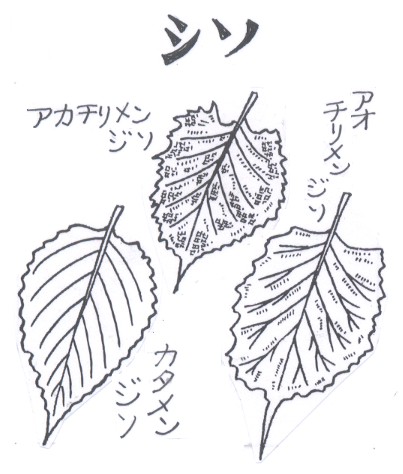 シソ
アカチリメン
ジソ
アオ
チリメン
ジソ
カタメン
ジソ